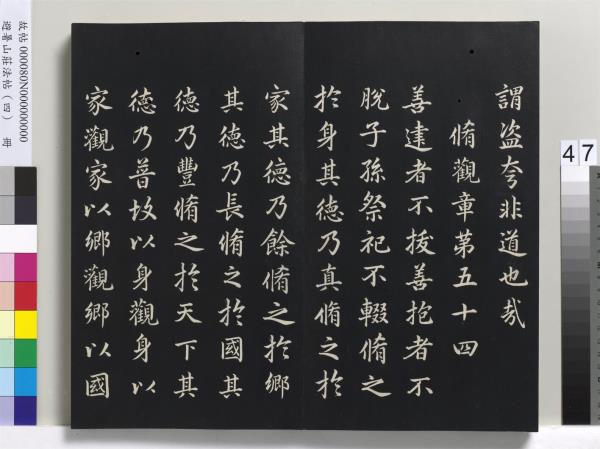 謂盗夸非道也哉
脩觀章第五十四
善建者不拔善抱者不
脫子孫祭祀不輟脩之
扵身其德乃真脩之扵
家其德乃餘脩之扵鄉
其德乃長脩之扵國其
德乃豐脩之扵天下其
德乃普故以身觀身以
家觀家以鄉觀鄉以國
故帖 000080N000000000
避暑山莊法帖（四） 冊
47